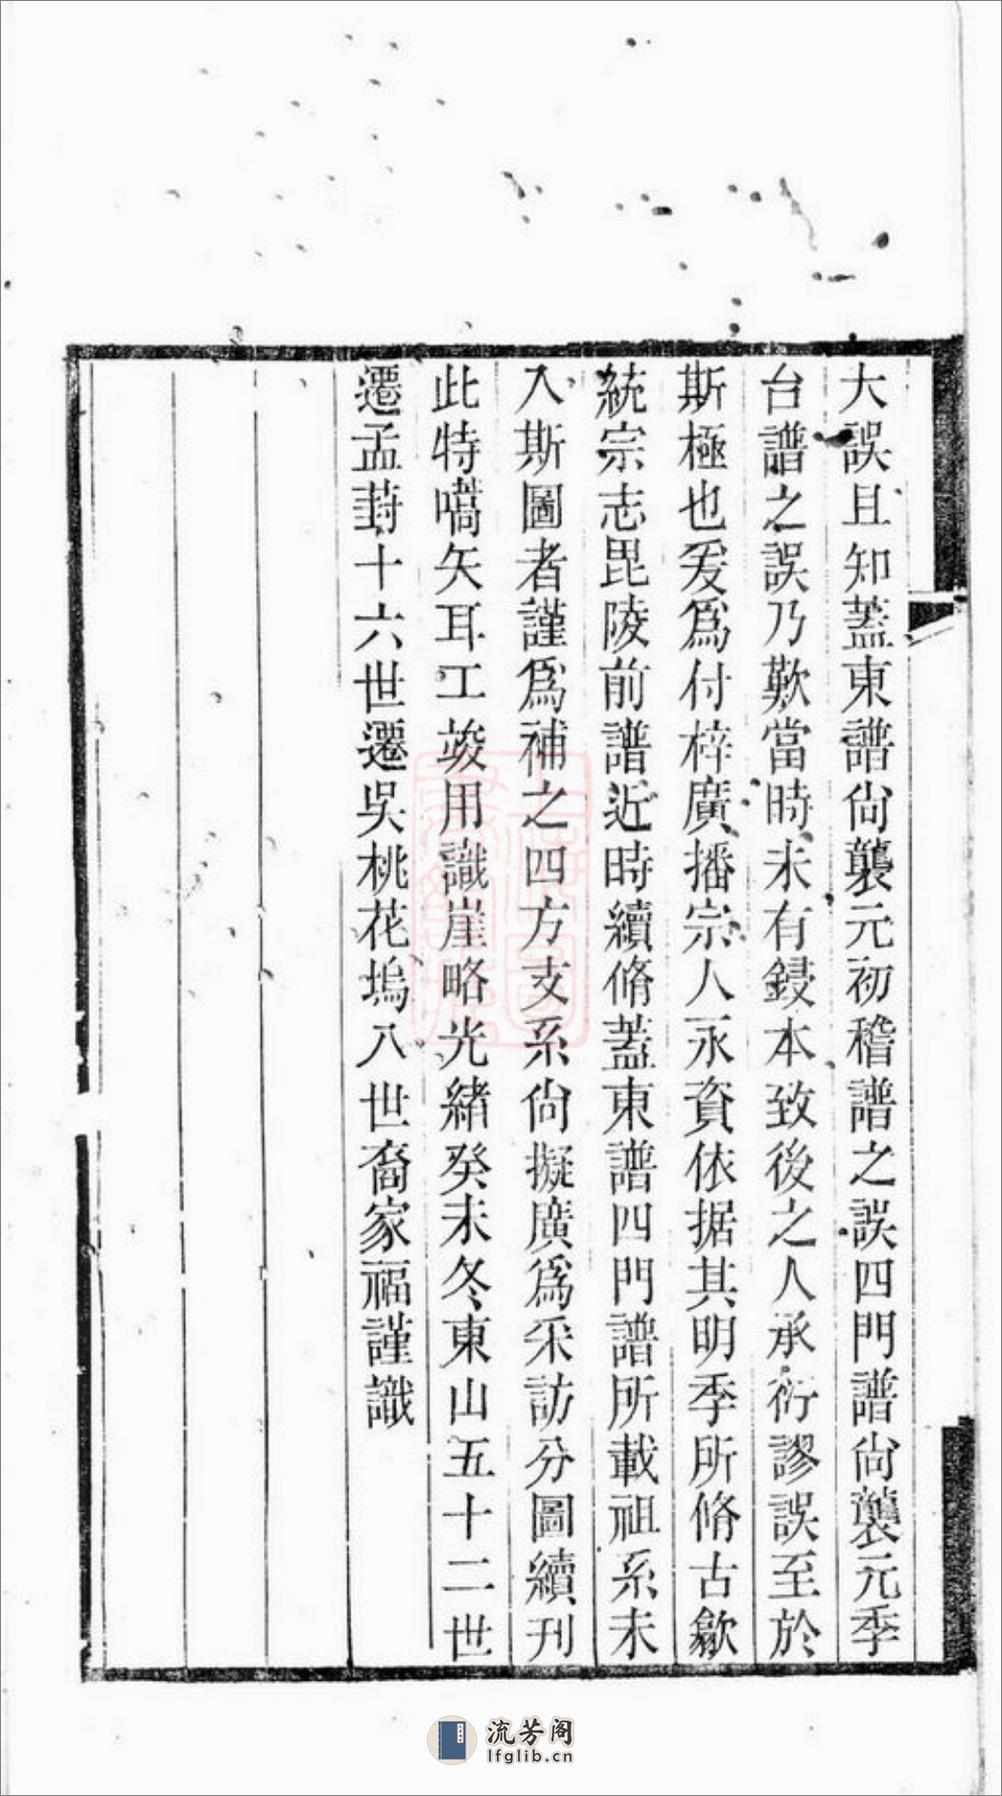 大誤且知蓋東譜尙襲元初稽譜之誤四門譜尙襲元季
台譜之誤乃歎當時未有鋟本致後之人承衍謬誤至於
斯極也爰爲付梓廣播宗人永資依据其明季所脩古歙
統宗志毘陵前譜近時續脩蓋東譜四門譜所載祖系未
入斯圖者謹爲補之四方支系尙擬廣爲采訪分圖續刊
此特嚆矢耳工竣用識崖略光緖癸未冬東山五十二世
遷孟葑十六世遷吳桃花塢八世裔家福謹識
流芳阁
lfglib.cn